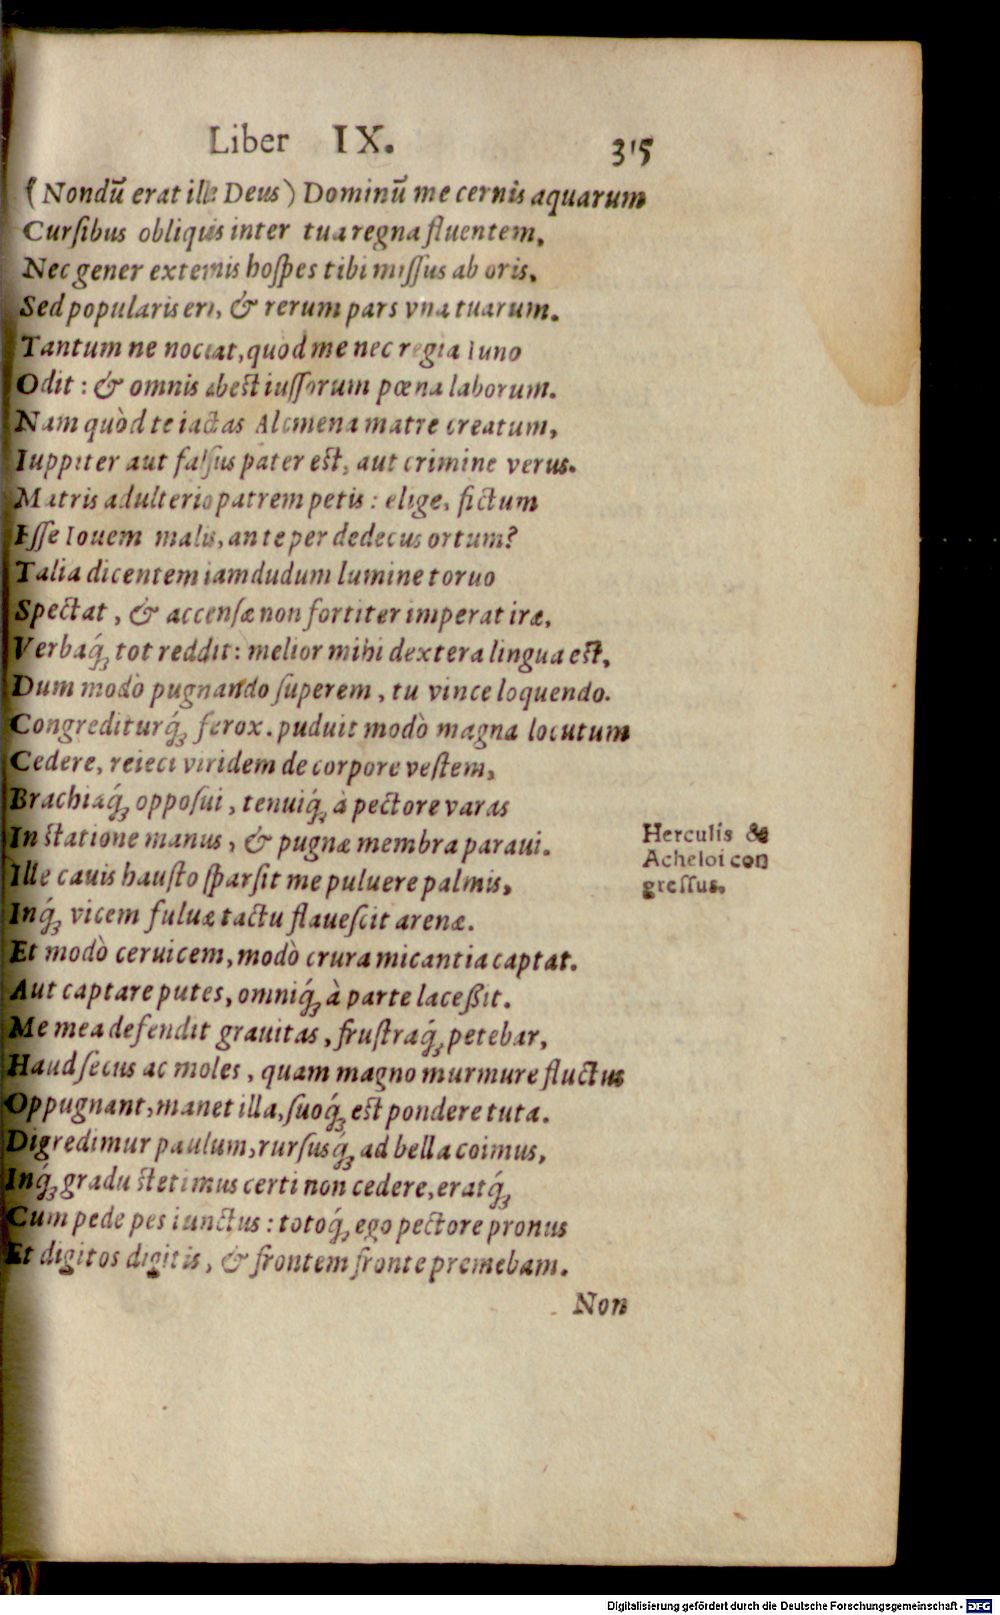 Liber IX. 315
(Nondū erat ille Deus) Dominū me cernis aquarum
Cursibus obliquis inter tua regna fluentem,
Nec gener externis hospes tibi missus ab oris,
Sed popularis ero, & rerum pars vna tuarum.
Tantum ne noceat, quod me nec regia Iuno
Odit: & omnis abest iussorum pœna laborum.
Nam quòd te iactas Alcmena matre creatum,
Iuppiter aut falsus pater est, aut crimine verus.
Matris adulterio patrem petis: elige, fictum
Esse Iouem malis, an te per dedecus ortum?
Talia dicentem iamdudum lumine toruo
Spectat, & accensæ non fortiter imperat iræ,
Verbaq́; tot reddit: melior mihi dextera lingua est,
Dum modò pugnando superem, tu vince loquendo.
Congrediturq́; ferox. puduit modò magna locutum
Cedere, reieci viridem de corpore vestem,
Brachiaq́; opposui, tenuiq́; à pectore varas
In statione manus, & pugnæ membra paraui.
Herculis &
Acheloi con
gressus.
Ille cauis hausto sparsit me puluere palmis,
Inq́; vicem fuluæ tactu flauescit arenæ.
Et modò ceruicem, modò crura micantia captat.
Aut captare putes, omniq́; à parte lacessit.
Me mea defendit grauitas, frustraq́; petebar,
Haud secus ac moles, quam magno murmure fluctus
Oppugnant, manet illa, suoq́; est pondere tuta.
Digredimur paulum, rursusq́; ad bella coimus,
Inq́; gradu stetimus certi non cedere, eratq́;
Cum pede pes iunctus: totoq́; ego pectore pronus
Et digitos digitis, & frontem fronte premebam.
Non
Digitalisierung gefördert durch die Deutsche Forschungsgemeinschaft - DFG